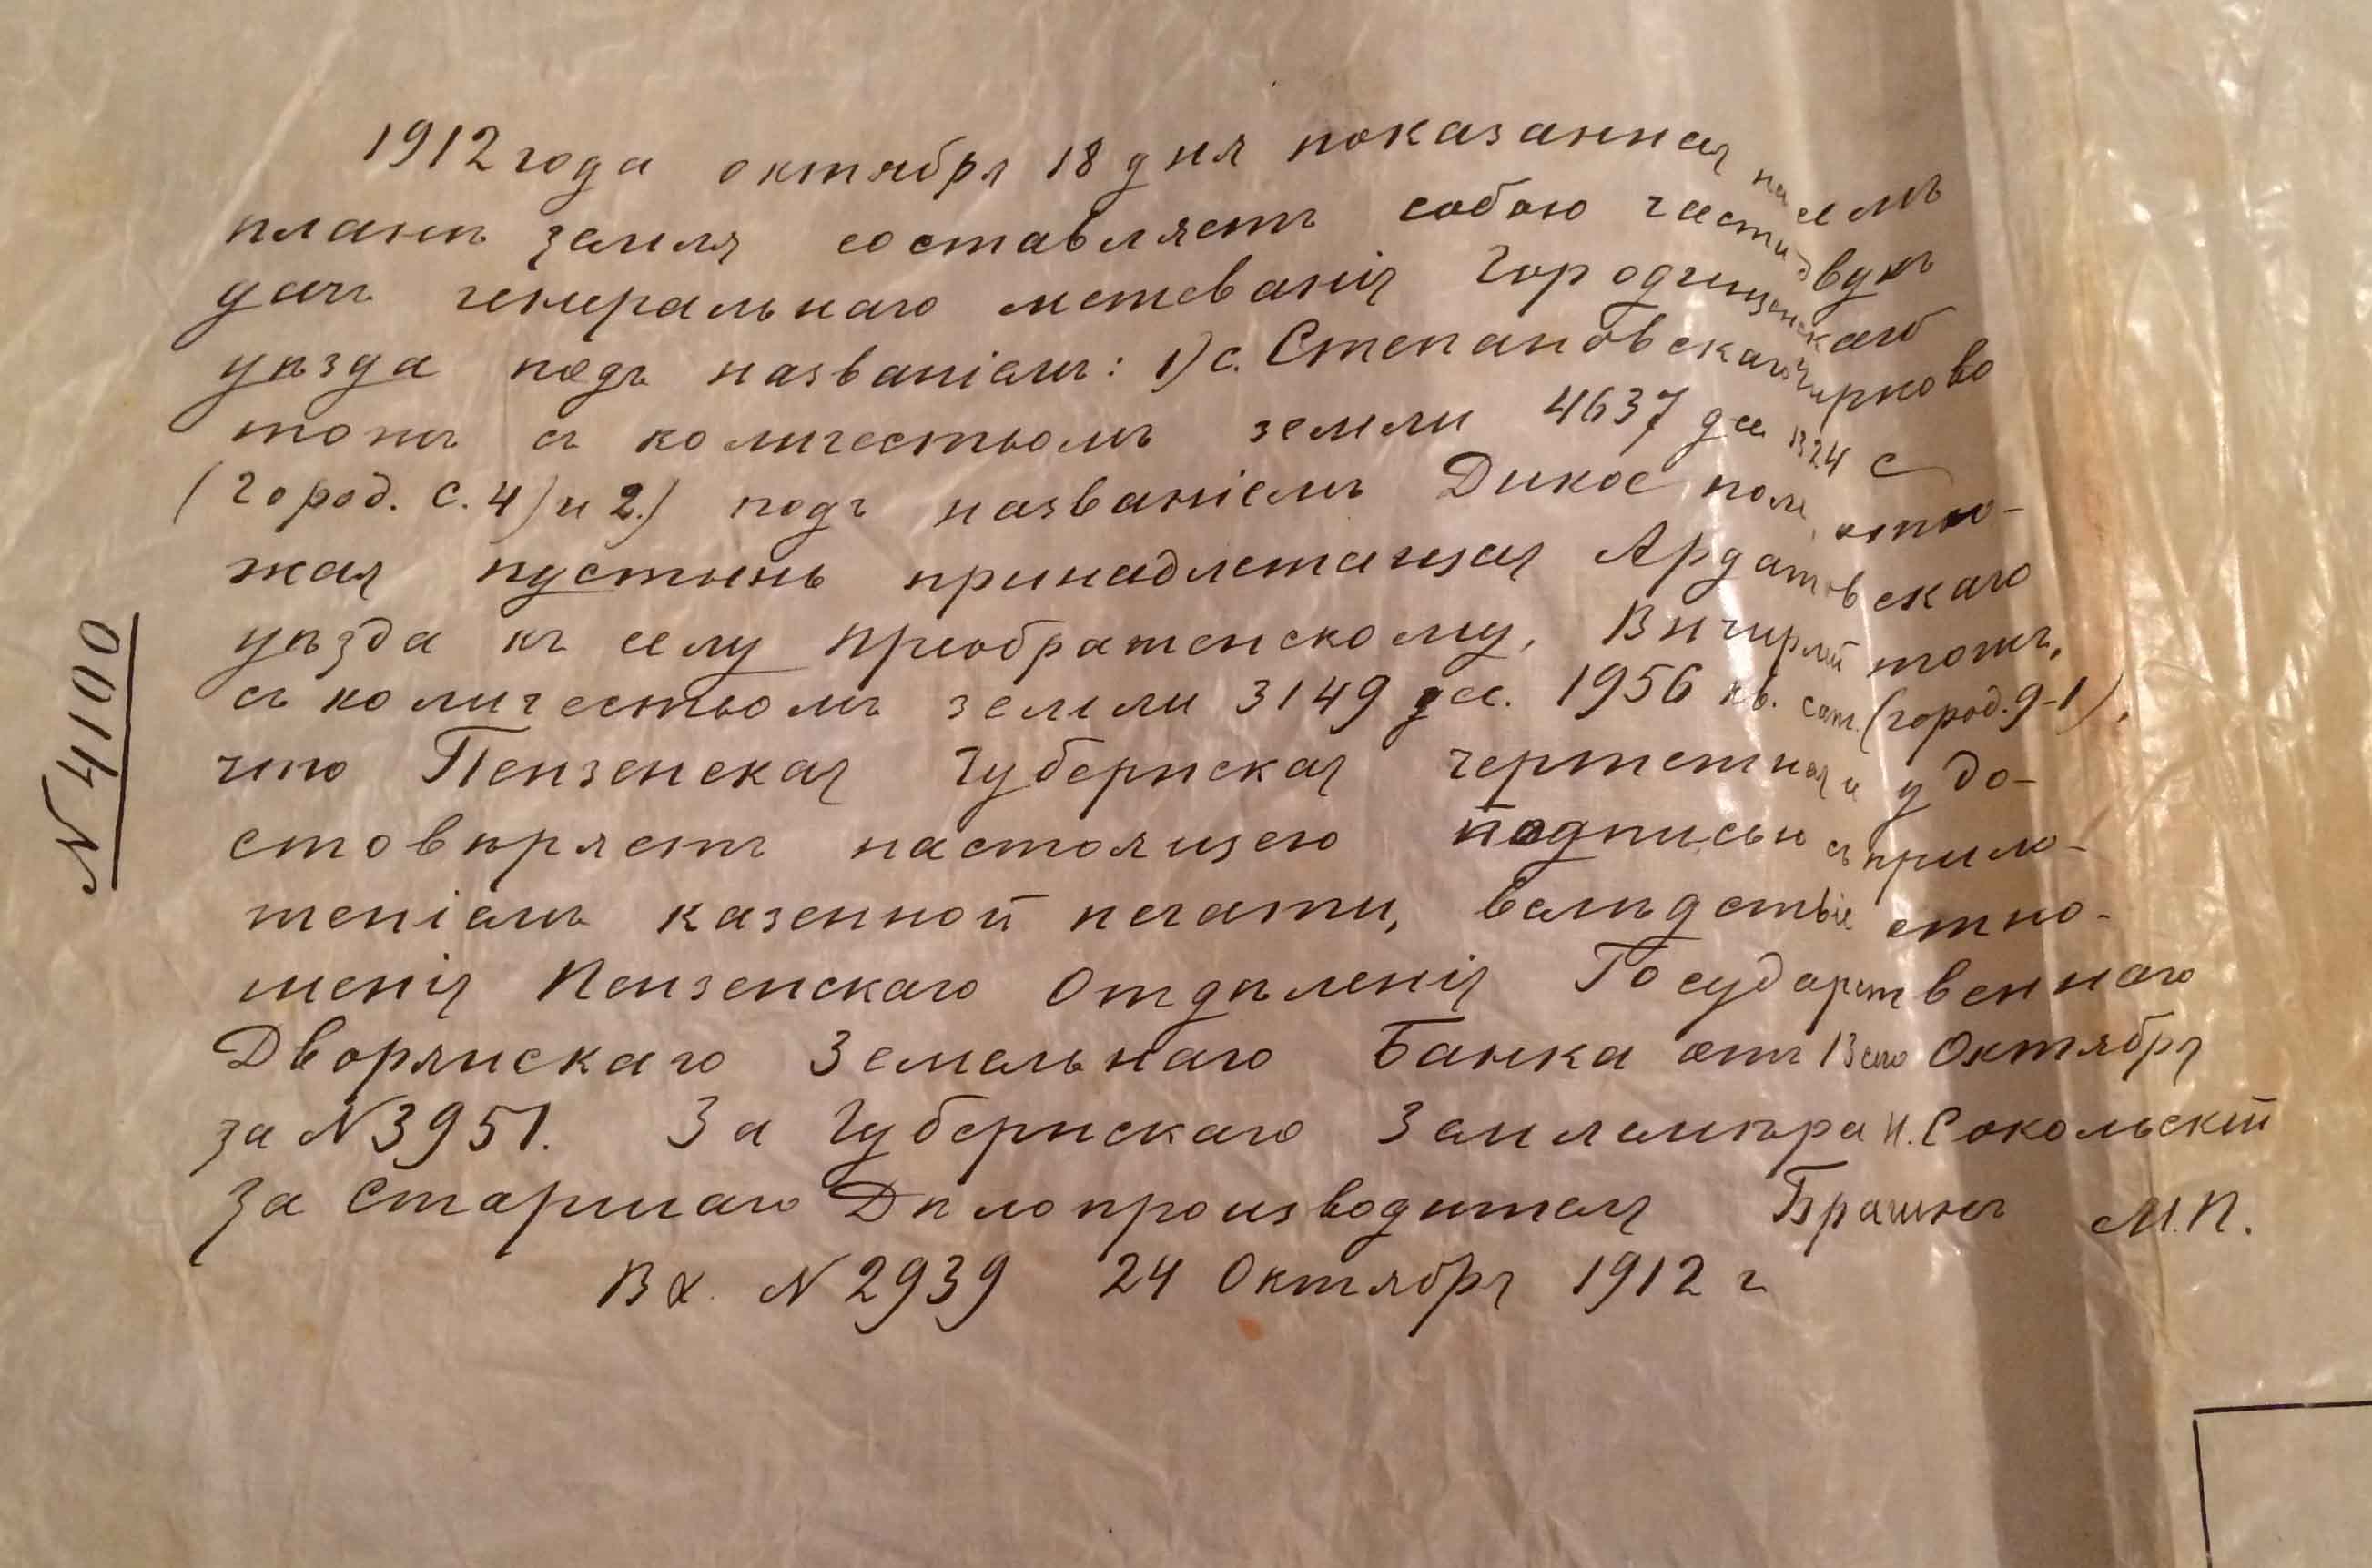 № 4100
1912 года октября 18 дня показанная на семъ
планѣ земля составляетъ собою части двухъ
дачъ генеральнаго межеванія Городищенскаго
уѣзда подъ названіемъ: 1) с. Степановскаго Чирково
тожъ съ количествомъ земли 4637 дес 1324 с
(Город. С. 4) и 2.) подъ названіемъ Дикое поле,
жая пустынь принадлежащая Ардатовскаго
уѣзда къ селу Преображенскому, тожъ,
съ количествомъ земли 3149 дес. 1956 кв. саж. (город. 9-1),
что Пензенская Губернская чертежная и удо-
стовѣряетъ настоящею подписью съ прило-
женіемъ казенной печати, вслѣдствіе отно-
шенія Пензенскаго Отдѣленія Государственнаго
Дворянскаго Земельнаго Банка отъ 13 сего Октября
за №3951. За Губернскаго Землемѣра Н. Сокольскій
За Старшаго Дѣлопроизводителя М.П.
Вх. № 2939 24 Октября 1912 г